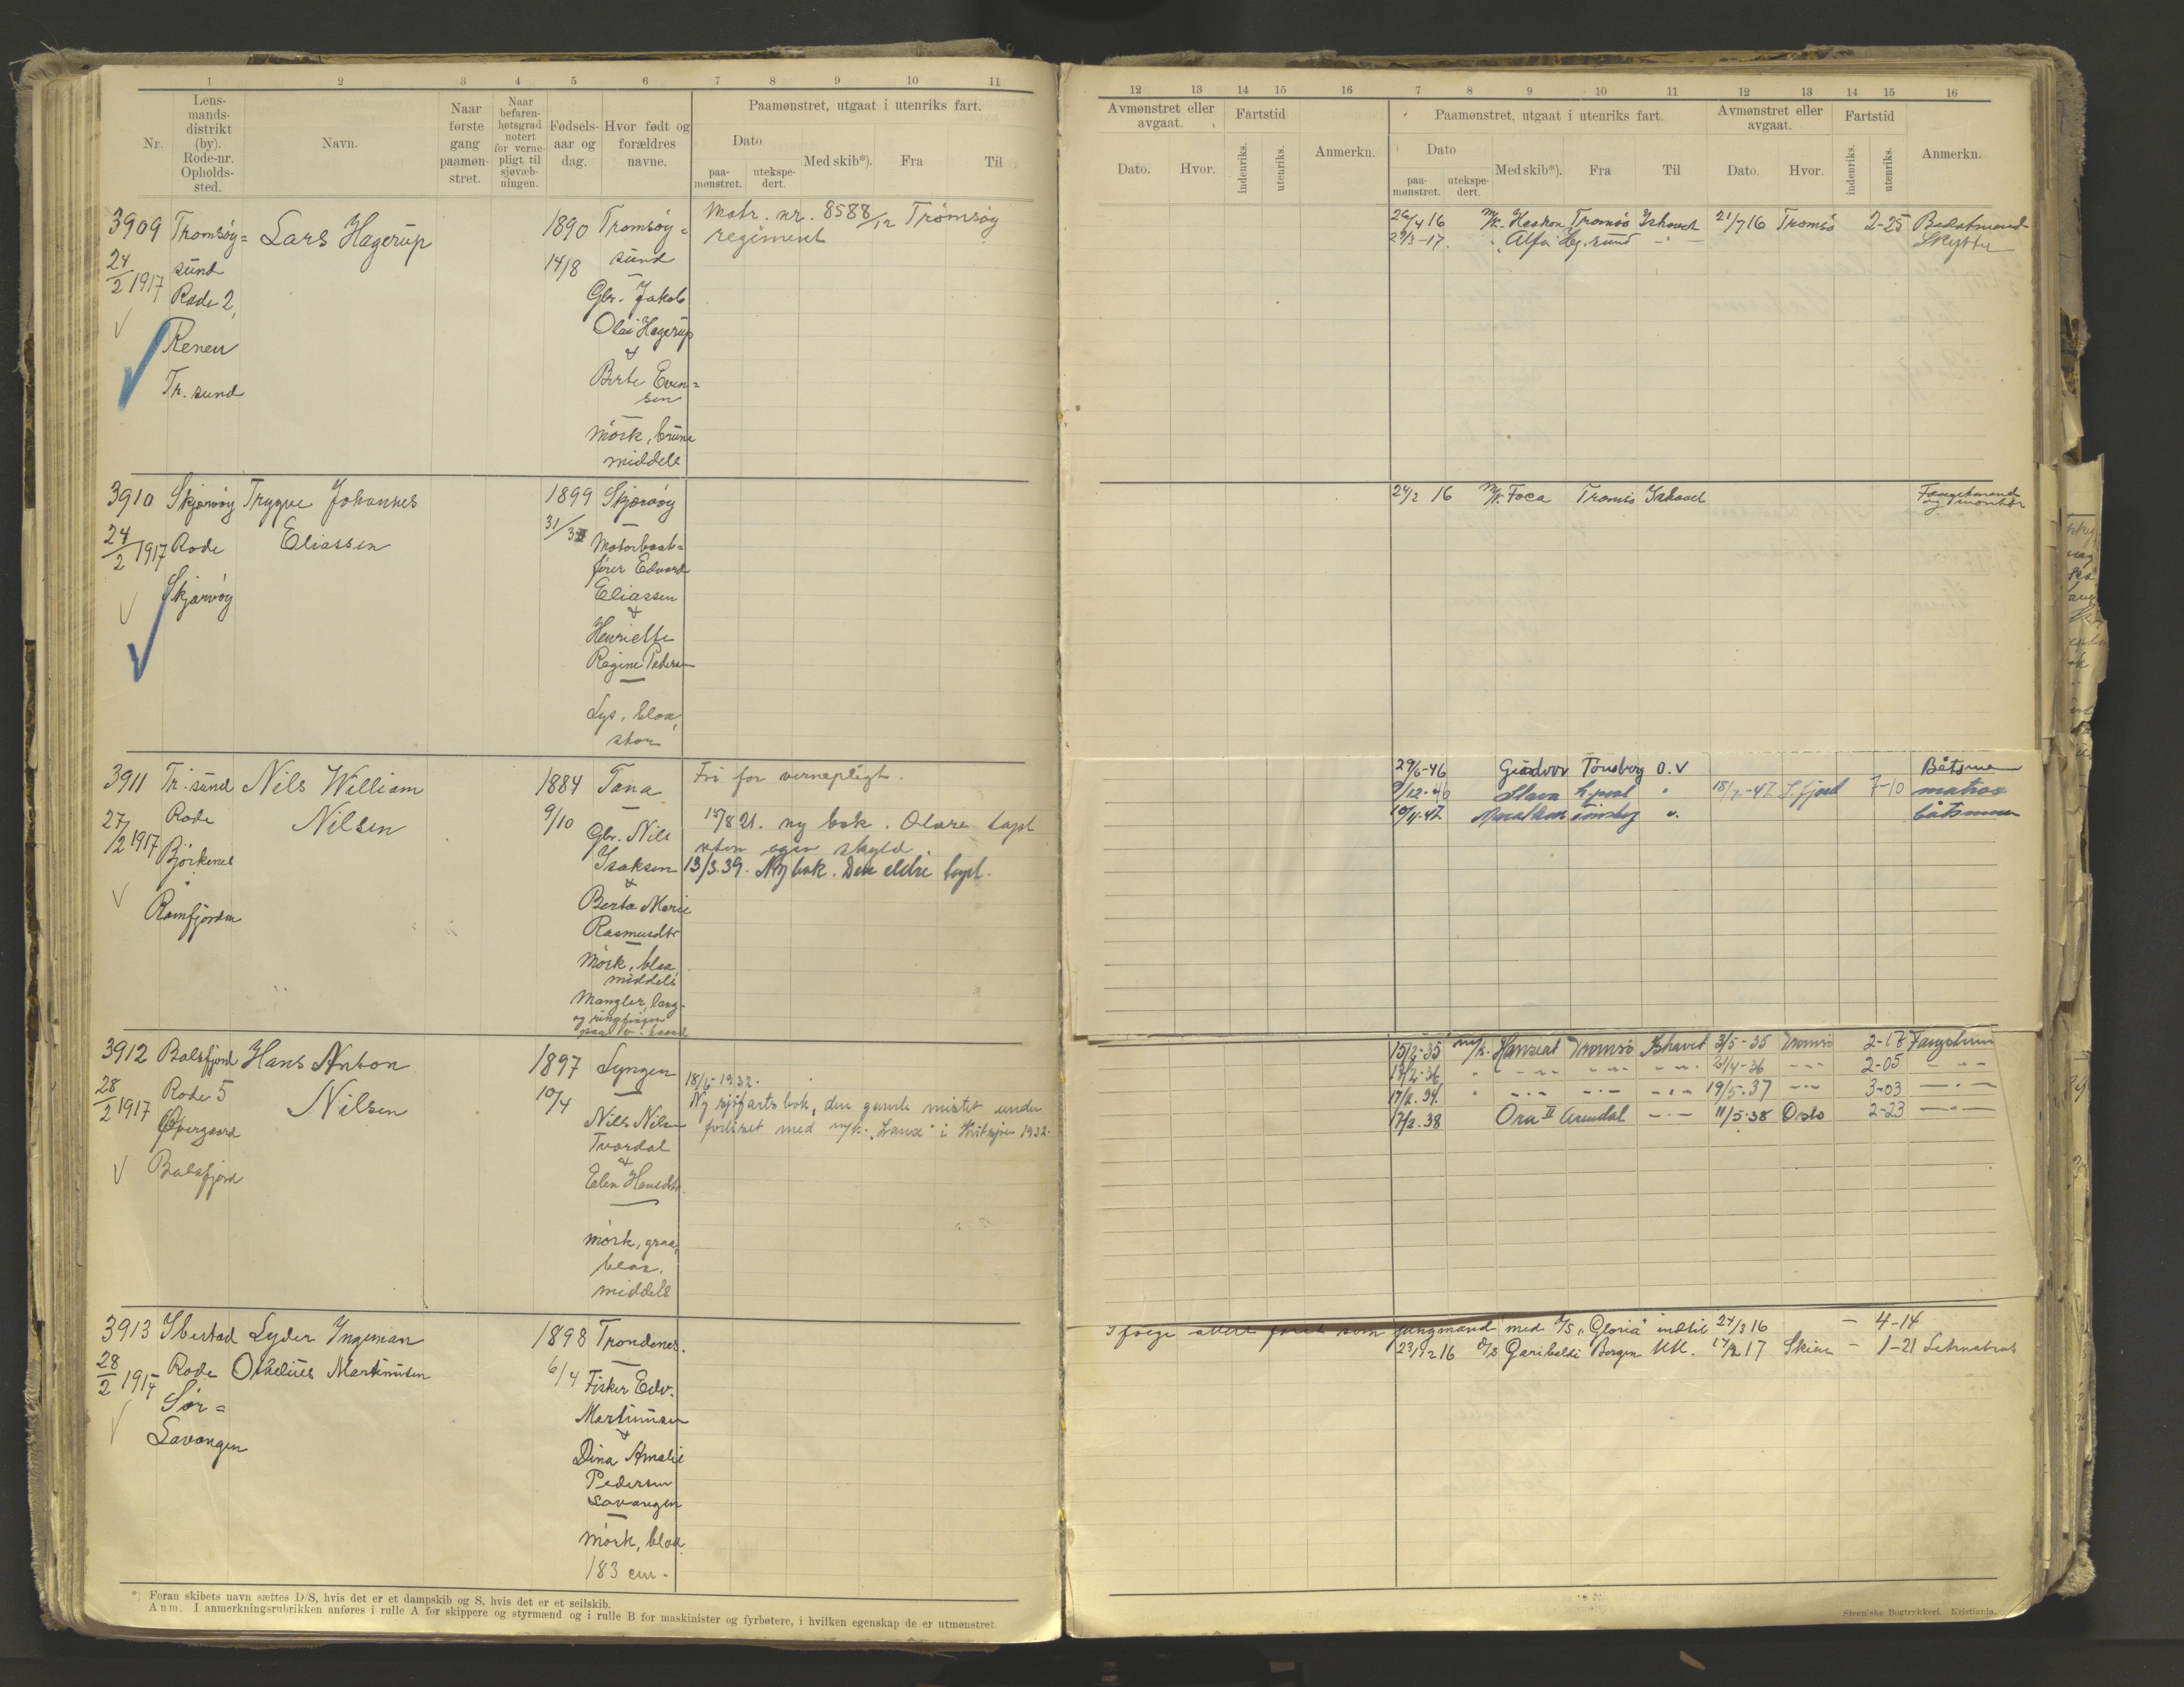 1 2 3 4 5 6 7 8 9 10 11
Nr.
Lens-
mands-
distrikt
(by).
Rode-nr.
Opholds-
sted.
Navn.
Naar
første
gang
paamøn-
stret.
Naar
befaren-
hetsgrad
notert
for verne-
pligt til
sjøvæb-
ningen.
Fødsels-
aar og
dag.
Hvor født og
forældres
navne.
Paamønstret, utgaat i utenriks fart.
Dato
paa-
mønstret.
utekspe-
dert.
Med skib*).
Fra
Til
3909 Tromsöy= Lars Hagerup 1890 Tromsöy=
24/2 1917 sund 14/8 sund
Rode 2,
Renen
Tr. sund
Gbr. Jakob
Olai Hagerup
&
Berte Even=
sen
Mörk, brune
middels
Matr. nr. 8588/12 Tromsöy
regiment
3910 Skjærvöy Trygve Johannes 1899 Skjærvöy
24/2 1917 Rode Eliassen 31/3
Skjærvöy
Motorbaat=
förer Edvard
Eliassen
&
Henriette
Regine Pedersen
Lys, blaa,
stor
3911 Tr. sund Nils William 1884 Tana
27/2 1917 Rode Nilsen 9/10
Björkenes
Ramfjorden
Gbr. Nils
Isaksen
&
Berta Marie
Rasmusdtr
Mörk, blaa
middels
Mangler lang-
og ringfinger
paa v. haand
Fri for vernepligt.
15/8 21. ny bok. Olare tapt
uten egen skyld.
13/3.39. Ny bok. Den eldre tapt.
3912 Balsfjord Hans Anton 1897 Lyngen
28/2 1917 Rode 5 Nilsen 10/4
Øvergaard
Balsfjord
Nils Nilsen
Tvordal
&
Elen Hansdtr.
mörk, graa,
blaa,
middels
18/6-1932.
Ny sjöfartsbok, den gamle mistet under
forliset med m/k. "Lanx" i Kvitsjöen 1932.
3913 Ibestad Lyder Ingeman 1898 Trondenes.
28/2 1917 Rode Othelius Martinusen 6/4
Sör=
Lavangen
Fisker Edv.
Martinusen
&
Dina Amalie
Pedersen
Lavangen
Mörk, blaa
183 cm.
*) Foran skibets navn sættes D/S, hvis det er et dampskib og S, hvis det er et seilskib.
Anm. I anmerkningsrubrikken anføres i rulle A for skippere og styrmænd og i rulle B for maskinister og fyrbøtere, i hvilken egenskap de er utmønstret.
12 13 14 15 16 7 8 9 10 11 12 13 14 15 16
Avmønstret eller
avgaat.
Dato. Hvor.
Fartstid
indenriks. utenriks.
Anmerkn.
Paamønstret, utgaat i utenriks fart.
Dato
paa-
mønstret.
utekspe-
dert.
Med skib*).
Fra
Til
Avmønstret eller
avgaat.
Dato. Hvor.
Fartstid
indenriks. utenriks.
Anmerkn.
26/4 16 M/k. Haakon Tromsö Ishavet 21/7 16 Tromsö 2-25 Baadsmand
29/3-17. " Alfa Hj.sund -"- Skytter
24/2 16 M/k. Foca Tromsö Ishavet Fangstmand
29/6-46 Tönsberg O.V Båtsman
9/12-40 " 18/7-47 S.fjord 7-10 matros
10/11.47 båtsman
15/2-35 m/k. Hanseat Tromsö Ishavet 3/5-35 Tromsö 2-18 Fangstman
13/2-36 " -"- -"- -"- 21/4-36 -"- 2-05 -"-
17/2.37. " -"- -"- -"- 19/5.37 -"- 3-03 -"-
17/2.38 Ora II Arendal -"- 11/5.38 Oslo 2-23 -"-
Ifölge attest faret som jungmand med D/S "Gloria" indtil 24/3 16 - 4-14
23/12 16 D/S Garibaldi Bergen UK. 14/2 17 Skien - 1-21 Letmatros
Steen'ske Bogtrykkeri. Kristiania.